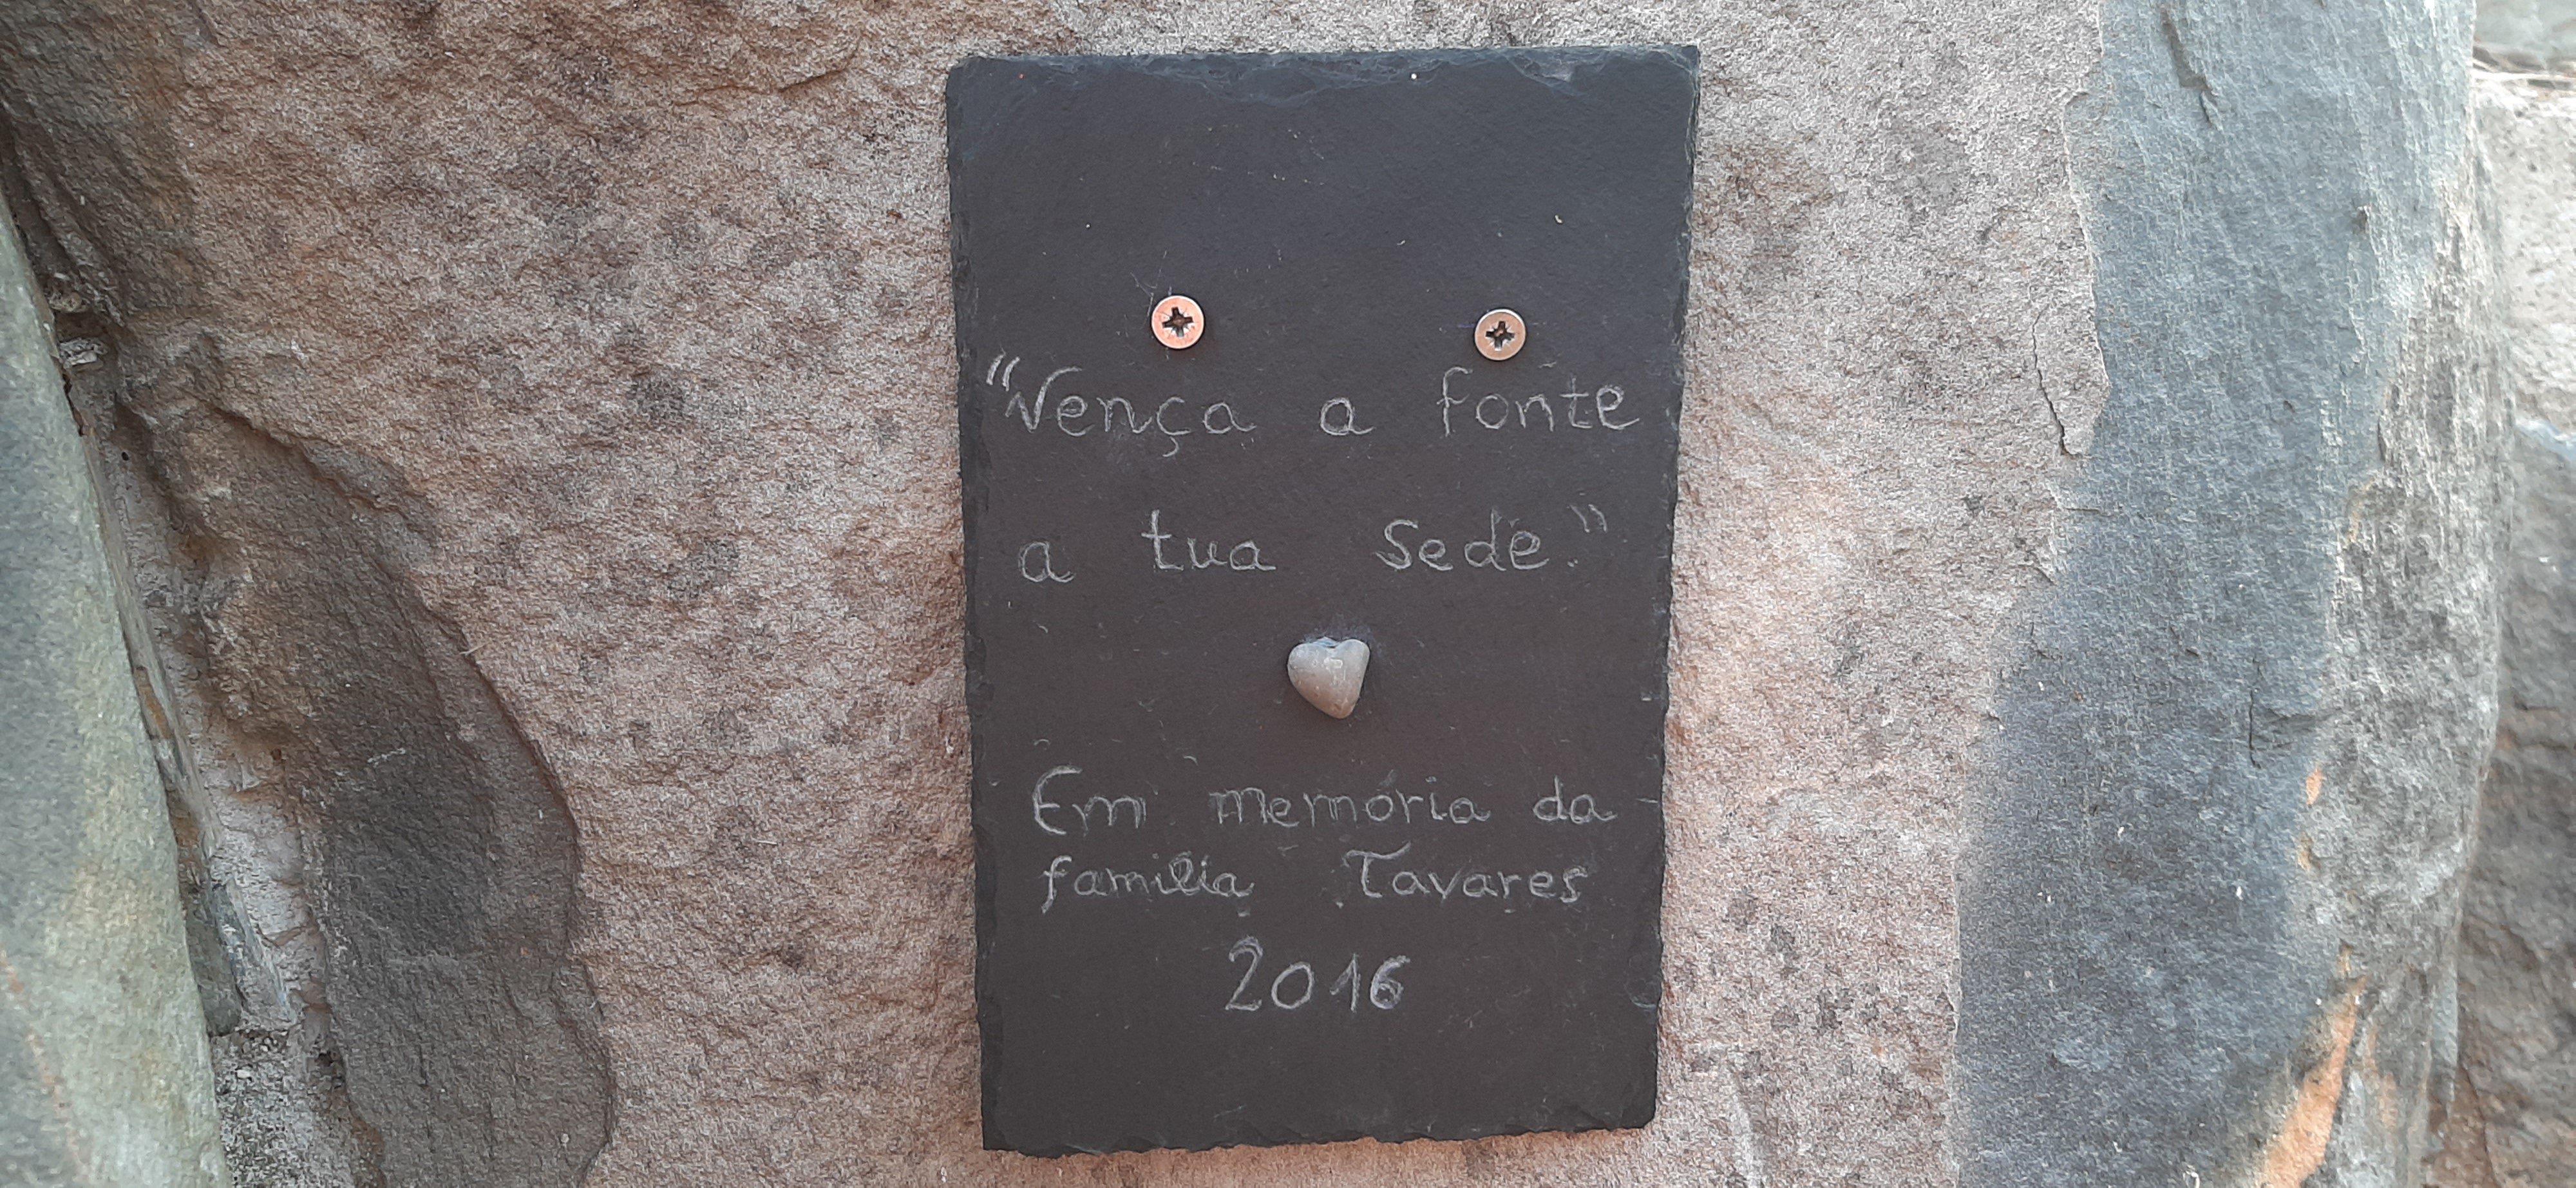 "Vença a fonte
a tua Sede."
Em memória da
família Tavares
2016